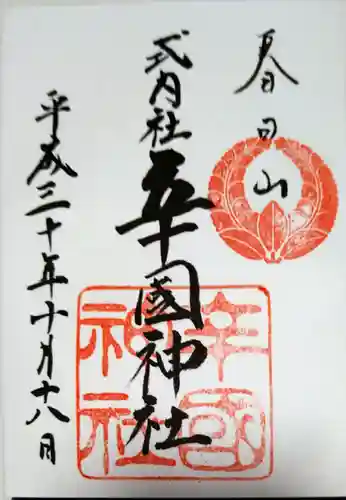 春日山
式内社
辛國神社
平成三十年十月十八日
辛國
神社